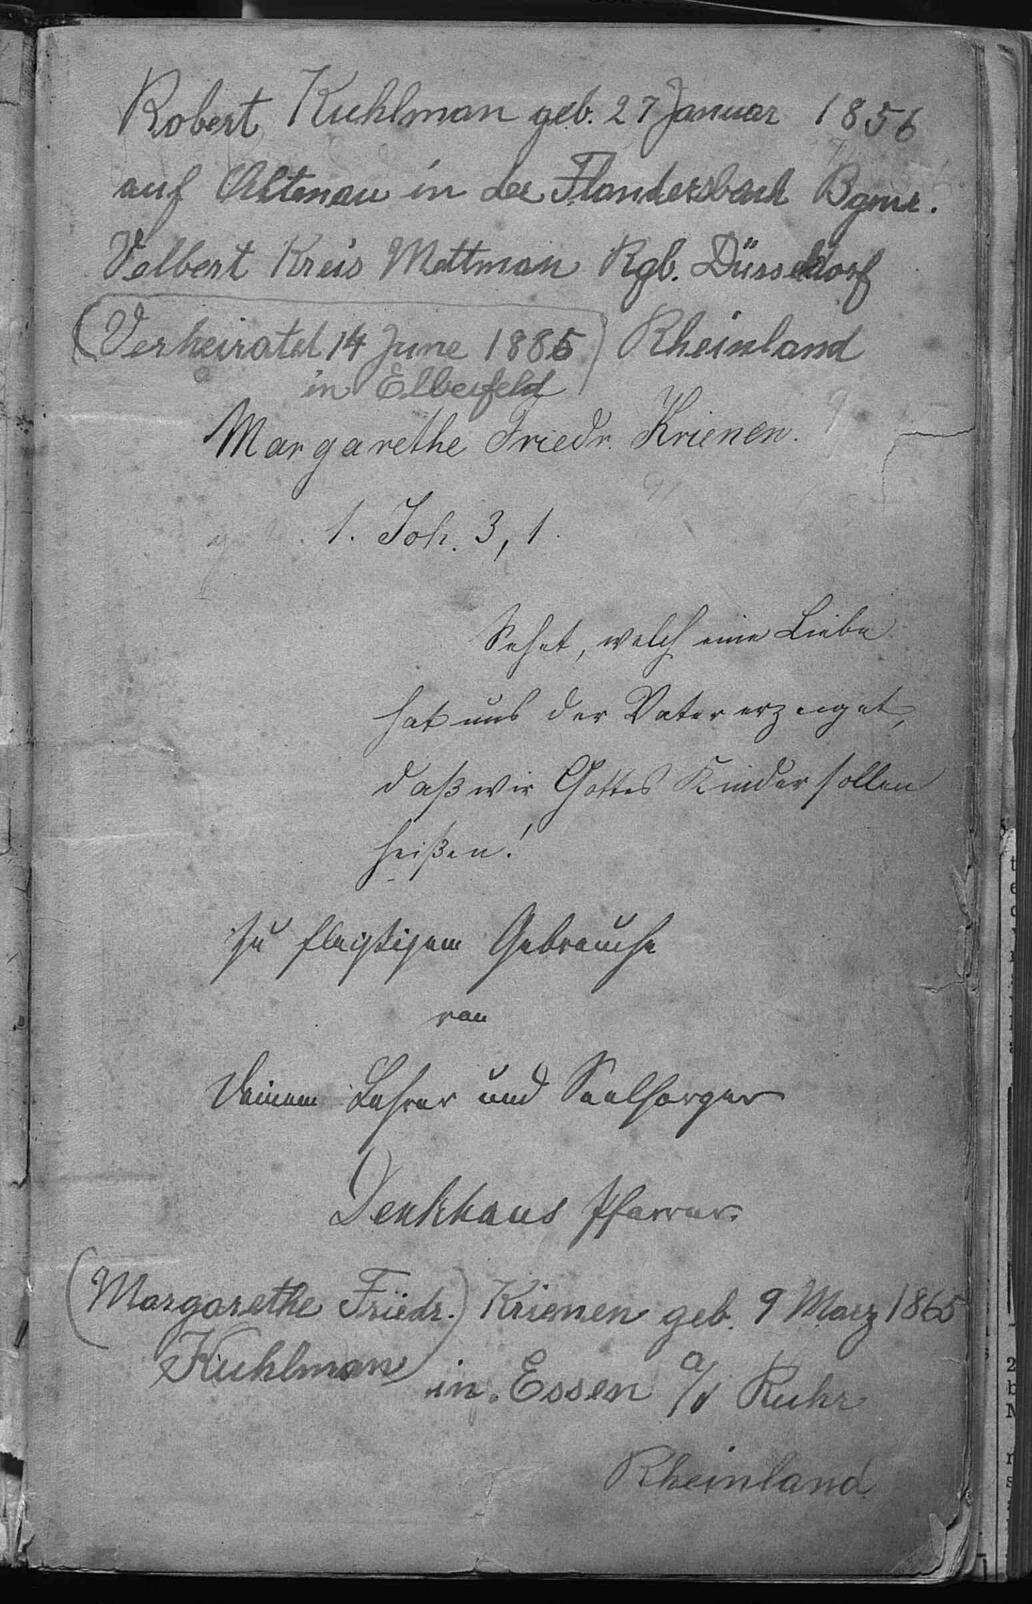 Robert Kuhlman geb. 27 Januar 1856
auf Altenau in der Flandersbach Bgmr.
Velbert Kreis Mettman Rgb. Düsseldorf
(Verheiratet 14 June 1885) Rheinland
in Elberfeld
Margarethe Friedr. Krienen.
1. Joh. 3, 1.
Sehet, welch eine Liebe
hat uns der Vater erzeiget,
daß wir Gottes Kinder sollen
heißen!
Zu fleißigem Gebrauche
von
Deinem Lehrer und Seelsorger
Denkhaus Pfarrer.
(Margarethe Friedr.) Krienen geb. 9 Maerz 1865
Kuhlman in Essen a/d Ruhr
Rheinland